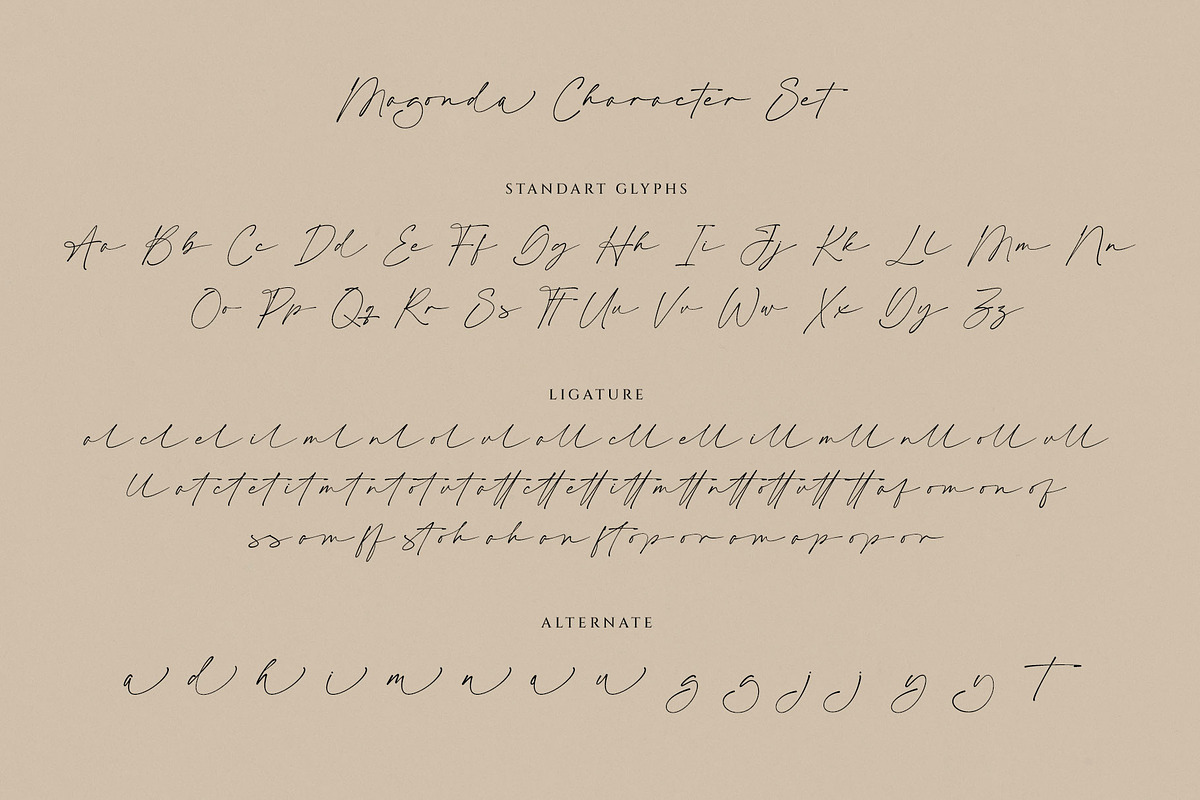 Magonda Character Set
STANDART GLYPHS
Aa Bb Cc Dd Ee Ff Gg Hh Ii Jj Kk Ll Mm Nn
Oo Pp Qq Rr Ss Tt Uu Vv Ww Xx Yy Zz
LIGATURE
al cl el il ml nl ol ul all cll ell ill mll nll oll ull
ll at ct et it mt nt ot ut att ctt ett itt mtt ntt ott utt tt af om on of
ss am ff st oh ah an ft op or am ap op or
ALTERNATE
a d h i m n a u g g j j y y t